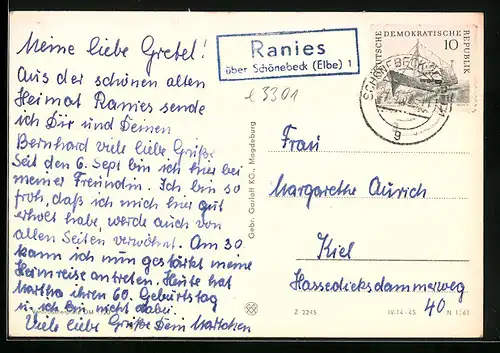 Meine liebe Gretel!
Aus der schönen alten
Heimat Ranies sende
ich Dir und Deinen
Bernhard viele liebe Grüße
Seit den 6. Sept bin ich hier bei
meiner Freundin. Ich bin so
froh, daß ich mich hier gut
erholt habe, werde auch von
allen Seiten verwöhnt. Am 30
kann ich nun gestärkt meine
Heimreise antreten. Heute hat
Martha ihren 60. Geburtstag
u. ich bin nicht dabei.
Viele liebe Grüße Dein
Ranies
über Schönebeck (Elbe) 1
e 3301
DEUTSCHE DEMOKRATISCHE REPUBLIK
10
SCHÖNEBECK
g
Frau
Margarethe Aurich
Kiel
Hasseldieksdammerweg
40
Gebr. Garloff KG., Magdeburg
Z 2245
IV-14-45
N 1/61